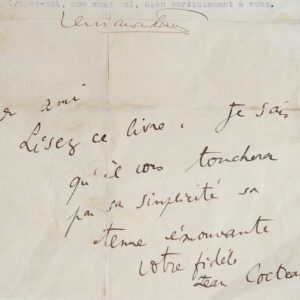 -moi, mon cher Ami, bien cordialement à vous.
ami
Lisez ce livre. Je sais
qu'il vous touchera
par sa simplicité sa
tenue émouvante
votre fidèle
Jean Cocteau